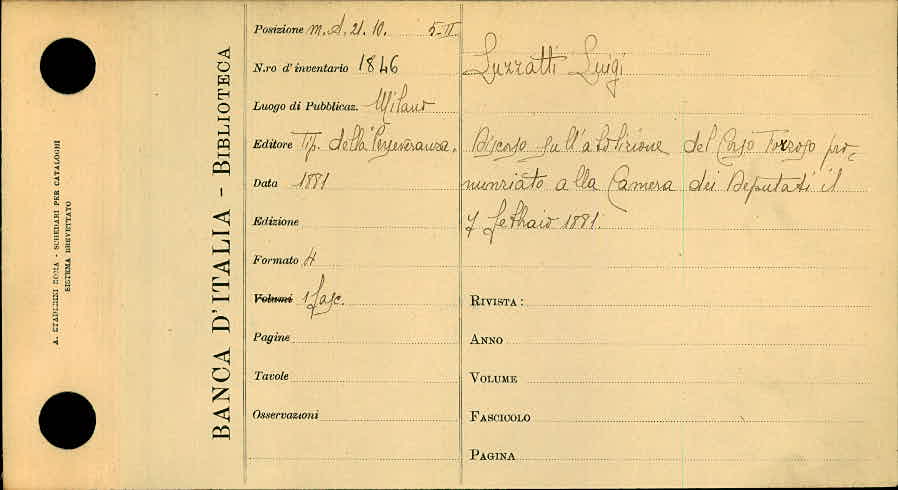 A. STADERINI ROMA - SCHEDARI PER CATALOGHI
SISTEMA BREVETTATO
BANCA D'ITALIA - BIBLIOTECA
Posizione m. A. 21. 10. 5-II
N.ro d'inventario 1846
Luogo di Pubblicaz. Milano
Editore Tip. della Perseveranza.
Data 1881
Edizione
Formato 4
Volumi 1 fasc.
Pagine
Tavole
Osservazioni
Luzzatti Luigi
Discorso sull'abolizione del Corso Forzoso pro-
nunziato alla Camera dei Deputati il
7 febbraio 1881.
RIVISTA:
ANNO
VOLUME
FASCICOLO
PAGINA